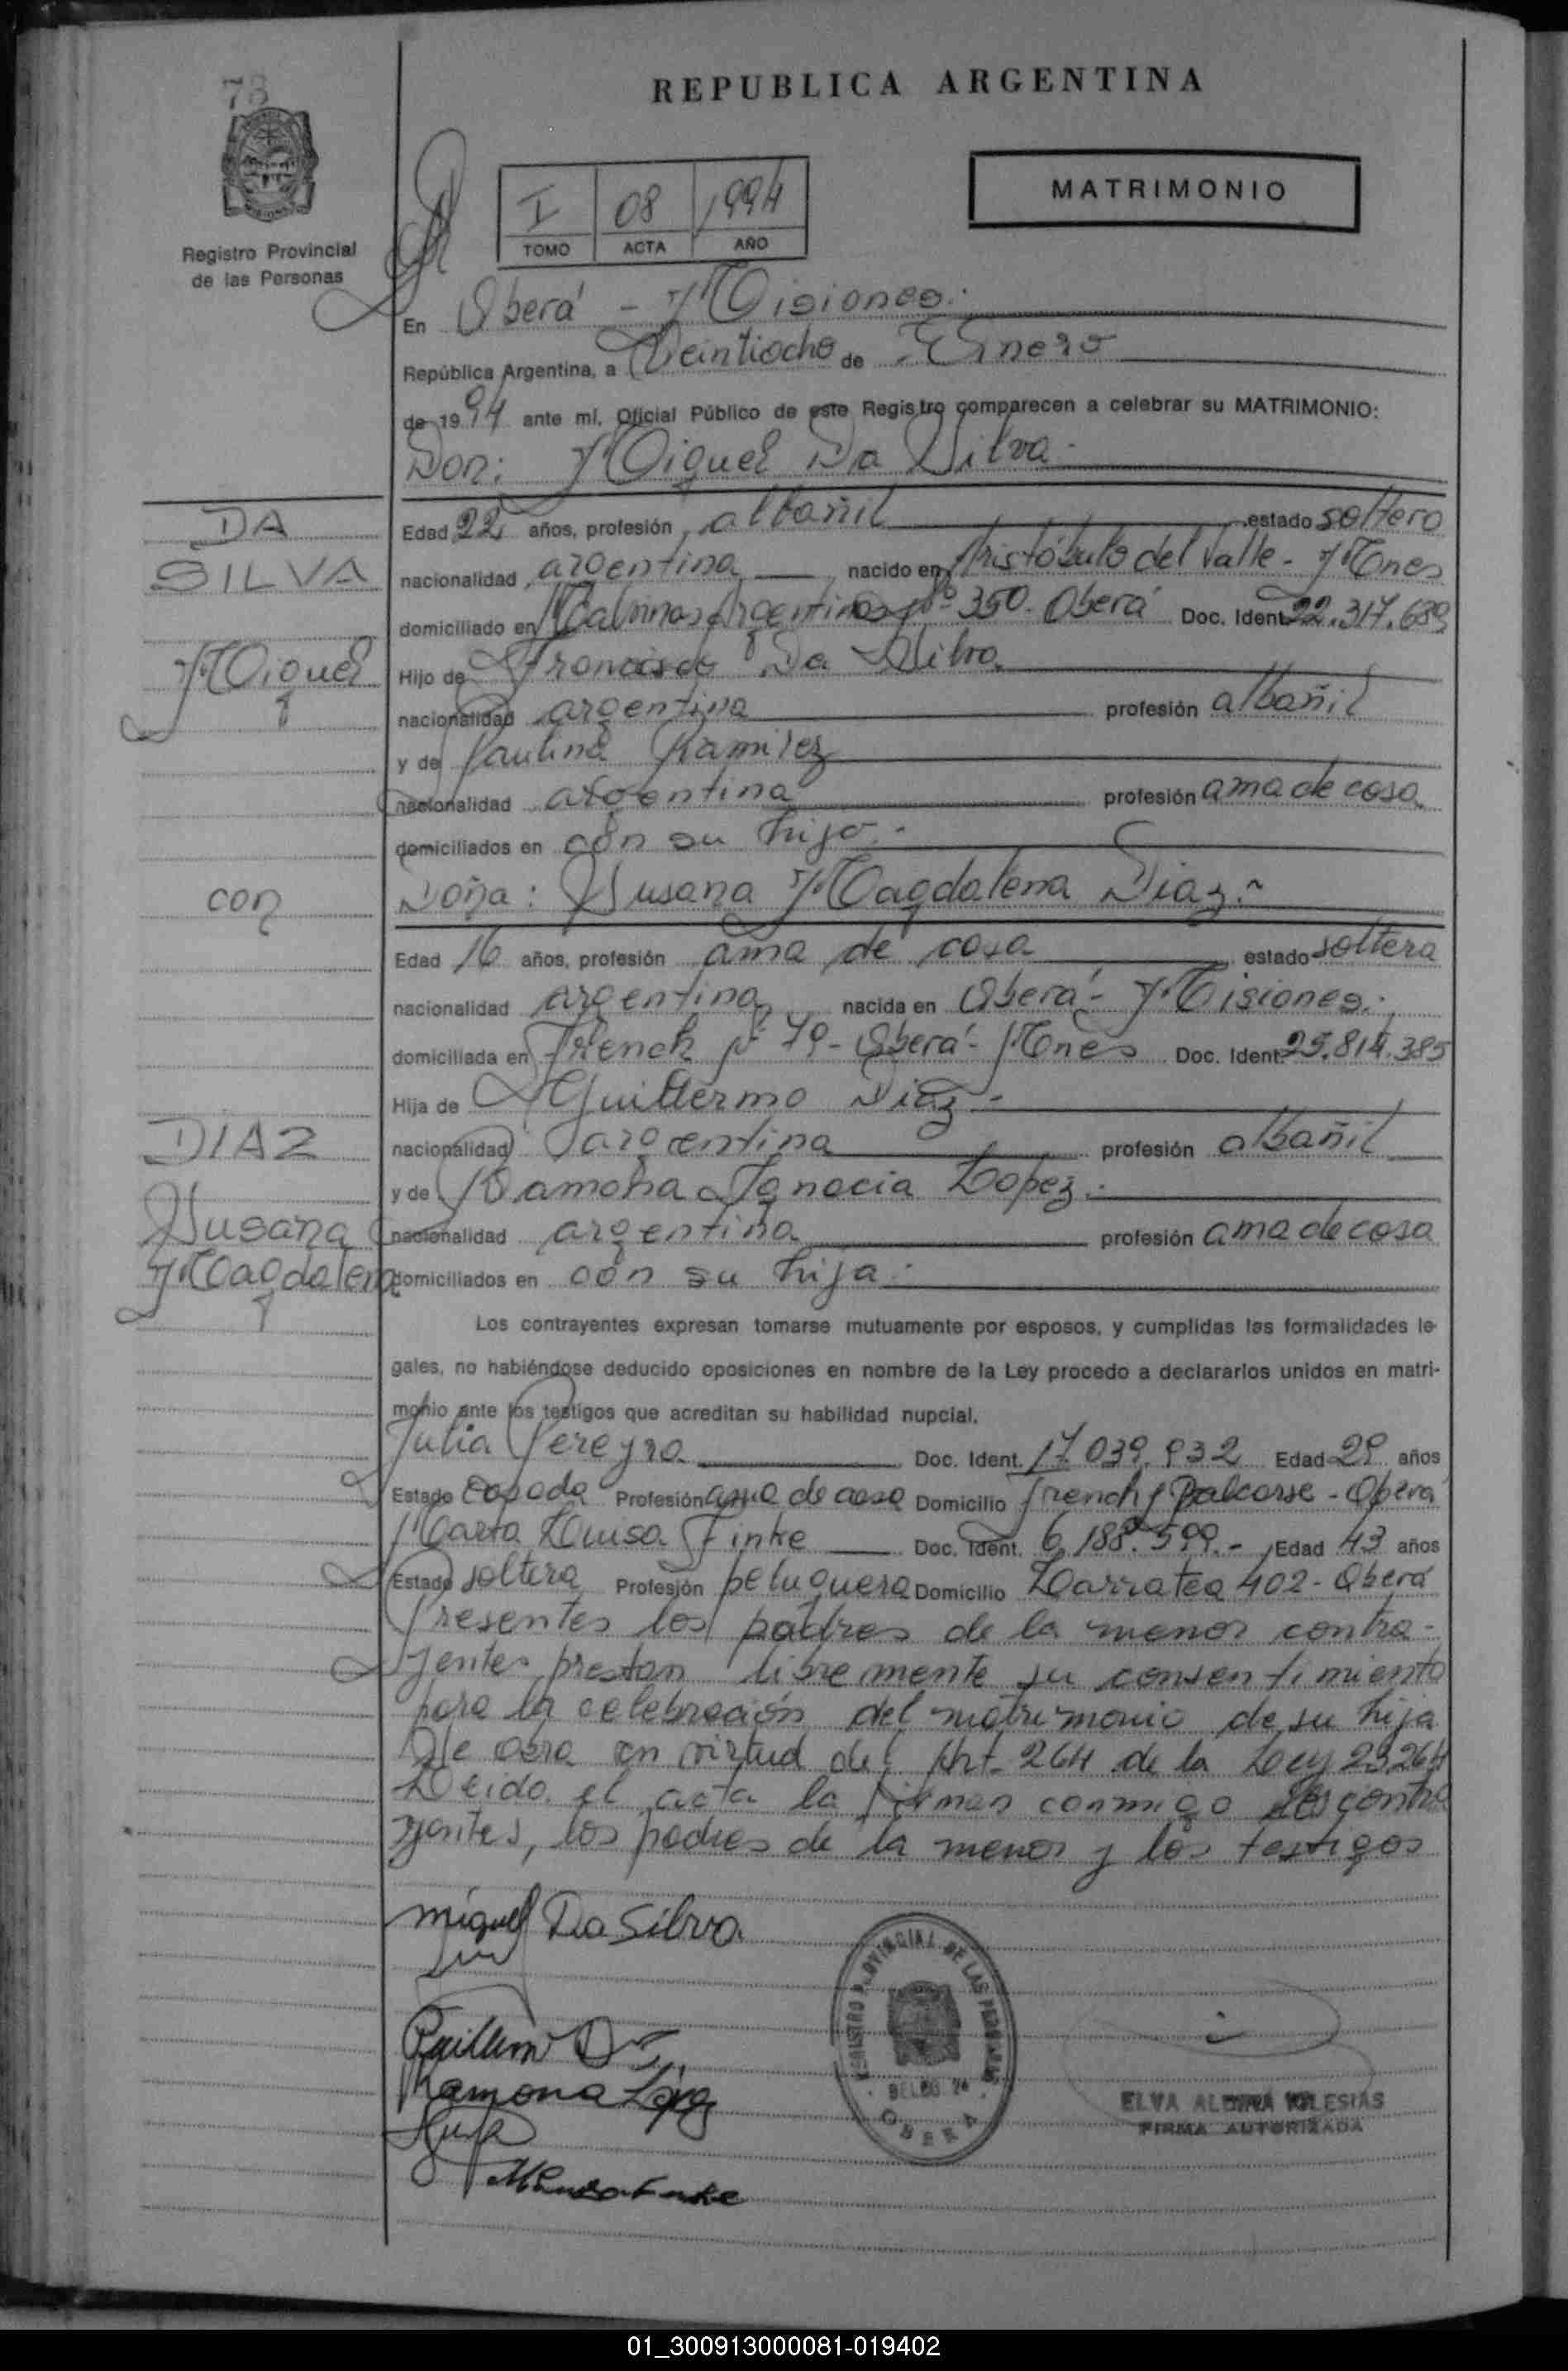 78
REPUBLICA ARGENTINA
Registro Provincial
de las Personas
I 08 1994
TOMO ACTA AÑO
MATRIMONIO
En Oberá - Misiones.
República Argentina, a Veintiocho de Enero
de 1994 ante mí, Oficial Público de este Registro comparecen a celebrar su MATRIMONIO:
Don: Miguel Da Silva.
DA
SILVA
Miguel
Edad 22 años, profesión albañil estado soltero
nacionalidad argentina nacido en Aristóbulo del Valle - Mones
domiciliado en Malvinas Argentinas Nº 350. Oberá Doc. Ident. 22.317.689
Hijo de Francisco Da Silva
nacionalidad argentina profesión albañil
y de Paulina Ramirez
nacionalidad argentina profesión ama de casa
domiciliados en con su hijo.
con
Doña: Susana Magdalena Diaz.
Edad 16 años, profesión ama de casa estado soltera
nacionalidad argentina nacida en Oberá - Misiones.
domiciliada en French Nº 79 - Oberá - Mones Doc. Ident. 25.814.385
Hija de Guillermo Diaz.
nacionalidad argentina profesión albañil
y de Ramona Ignacia Lopez.
nacionalidad argentina profesión ama de casa
domiciliados en con su hija.
DIAZ
Susana
Magdalena
Los contrayentes expresan tomarse mutuamente por esposos, y cumplidas las formalidades le-
gales, no habiéndose deducido oposiciones en nombre de la Ley procedo a declararlos unidos en matri-
monio ante los testigos que acreditan su habilidad nupcial.
Julia Pereyra Doc. Ident. 17.039.932 Edad 29 años
Estado casada Profesión ama de casa Domicilio French y Balcarse - Oberá
Marta Luisa Finke Doc. Ident. 6.188.599.- Edad 43 años
Estado soltera Profesión peluquera Domicilio Larratea 402 - Oberá
Presentes los padres de la menor contra-
yentes prestan libremente su consentimiento
para la celebración del matrimonio de su hija
en virtud del Art. 264 de la Ley 23264
Leida el acta la firman conmigo los contra
yentes, los padres de la menor y los testigos
Miguel Da Silva
Ramona López
REGISTRO PROVINCIAL DE LAS PERSONAS
OBERA
ELVA IGLESIAS
FIRMA AUTORIZADA
01_300913000081-019402